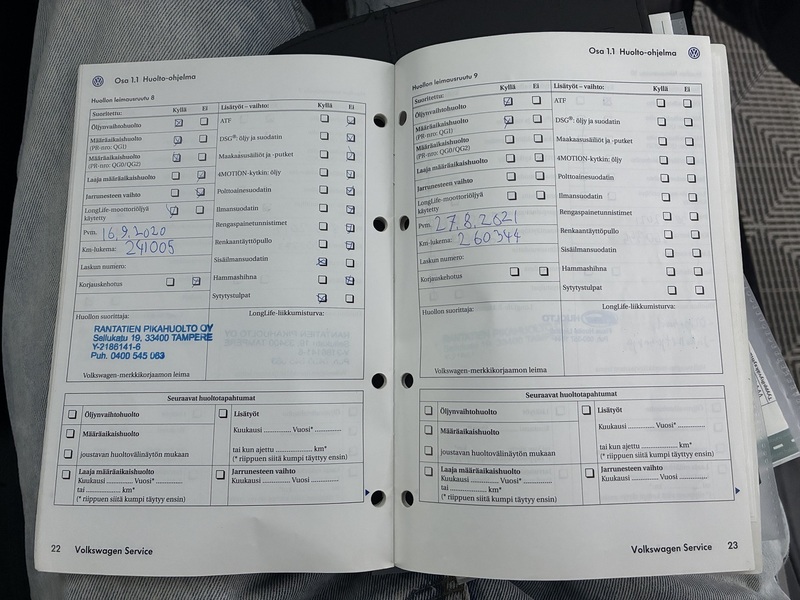 Osa 1.1 Huolto-ohjelma
Huollon leimausruutu 8
Suoritettu: Kyllä Ei
Öljynvaihtohuolto
Määräaikaishuolto
(PR-nro: QG1)
Määräaikaishuolto
(PR-nro: QG0/QG2)
Laaja määräaikaishuolto
Jarrunesteen vaihto
LongLife-moottoriöljyä
käytetty
Pvm. 16.9.2020
Km-lukema: 241005
Laskun numero:
Korjauskehotus
Lisätyöt – vaihto: Kyllä Ei
ATF
DSG®: öljy ja suodatin
Maakaasusäiliöt ja -putket
4MOTION-kytkin; öljy
Polttoainesuodatin
Ilmansuodatin
Rengaspainetunnistimet
Renkaantäyttöpullo
Sisäilmansuodatin
Hammashihna
Sytytystulpat
Huollon suorittaja:
LongLife-liikkumisturva:
RANTATIEN PIKAHUOLTO OY
Sellukatu 19, 33400 TAMPERE
Y-2186141-6
Puh. 0400 545 063
Volkswagen-merkkikorjaamon leima
Seuraavat huoltotapahtumat
Öljynvaihtohuolto
Määräaikaishuolto
joustavan huoltovälinäytön mukaan
Laaja määräaikaishuolto
Kuukausi ............ Vuosi* ............
tai ............... km*
(* riippuen siitä kumpi täytyy ensin)
Lisätyöt
Kuukausi ............ Vuosi* ............
tai kun ajettu ............... km*
(* riippuen siitä kumpi täytyy ensin)
Jarrunesteen vaihto
Kuukausi ............ Vuosi ............
22 Volkswagen Service
Osa 1.1 Huolto-ohjelma
Huollon leimausruutu 9
Suoritettu: Kyllä Ei
Öljynvaihtohuolto
Määräaikaishuolto
(PR-nro: QG1)
Määräaikaishuolto
(PR-nro: QG0/QG2)
Laaja määräaikaishuolto
Jarrunesteen vaihto
LongLife-moottoriöljyä
käytetty
Pvm. 27.8.2021
Km-lukema: 260344
Laskun numero:
Korjauskehotus
Lisätyöt – vaihto: Kyllä Ei
ATF
DSG®: öljy ja suodatin
Maakaasusäiliöt ja -putket
4MOTION-kytkin; öljy
Polttoainesuodatin
Ilmansuodatin
Rengaspainetunnistimet
Renkaantäyttöpullo
Sisäilmansuodatin
Hammashihna
Sytytystulpat
Huollon suorittaja:
LongLife-liikkumisturva:
Volkswagen-merkkikorjaamon leima
Seuraavat huoltotapahtumat
Öljynvaihtohuolto
Määräaikaishuolto
joustavan huoltovälinäytön mukaan
Laaja määräaikaishuolto
Kuukausi ............ Vuosi* ............
tai ............... km*
(* riippuen siitä kumpi täytyy ensin)
Lisätyöt
Kuukausi ............ Vuosi* ............
tai kun ajettu ............... km*
(* riippuen siitä kumpi täytyy ensin)
Jarrunesteen vaihto
Kuukausi ............ Vuosi ............
Volkswagen Service 23